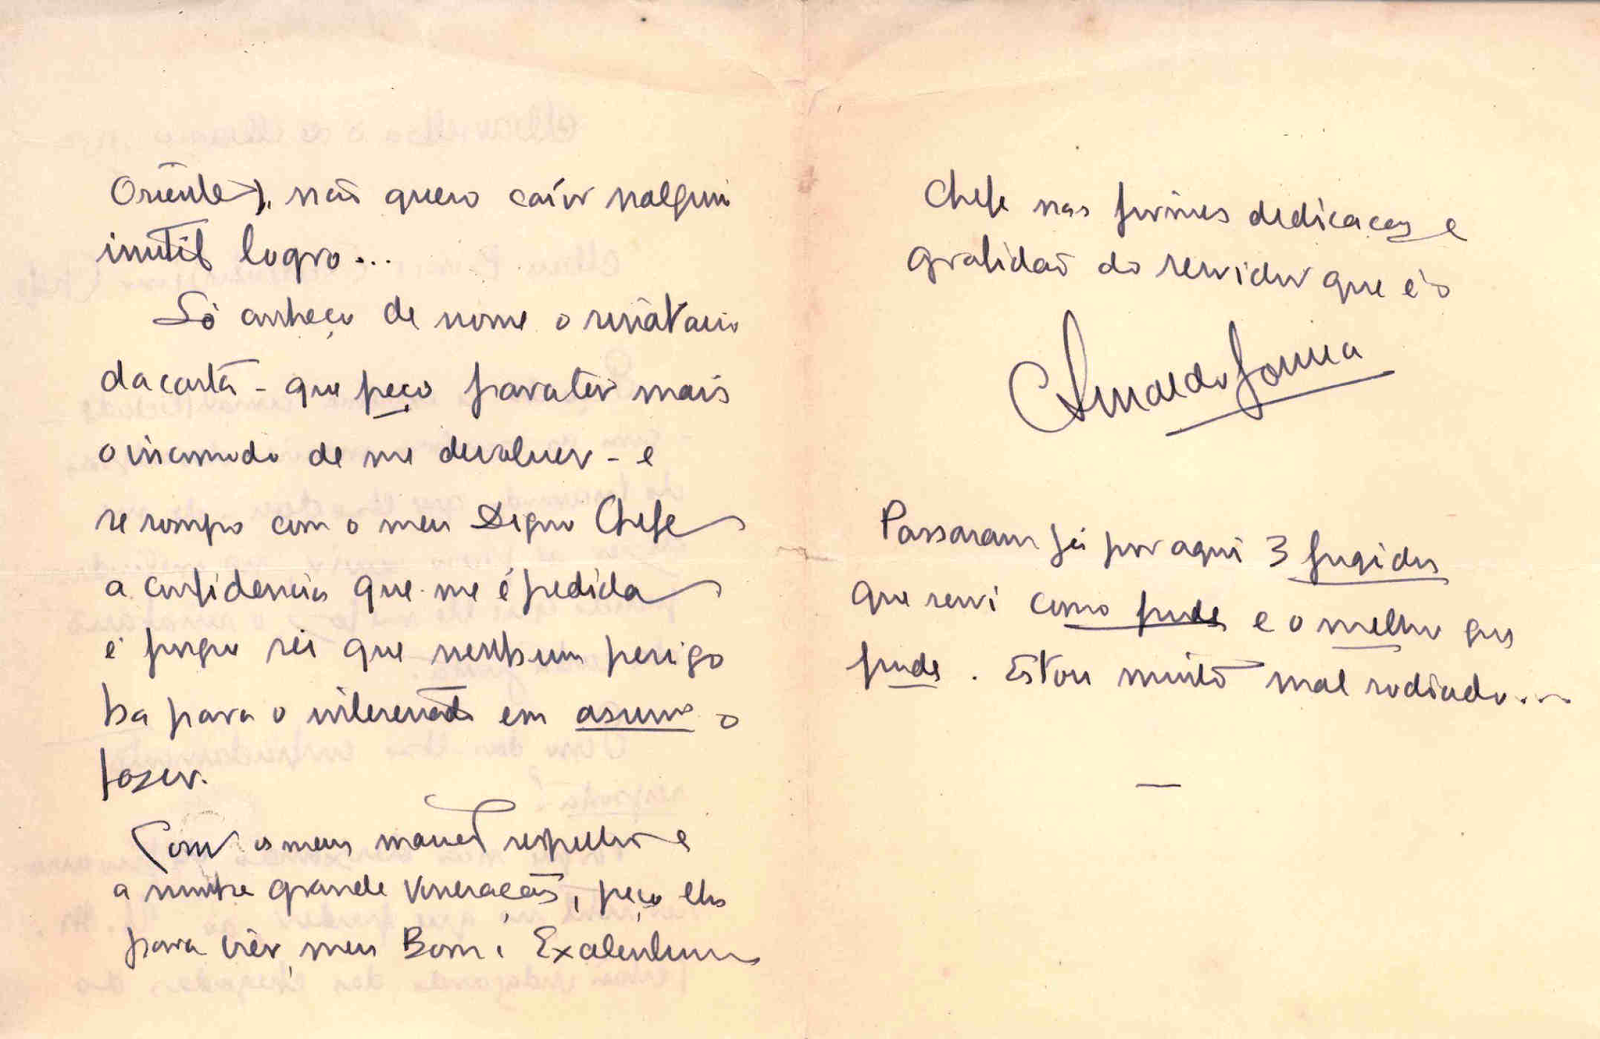 Oriente), não quero caír nalgum
inutil logro...
Só conheço de nome o signatario
da carta - que peço para ter mais
o incomodo de me devolver - e
se rompo com o meu Digno Chefe
a confidencia que me é pedida
é porque sei que nenhum perigo
ha para o interessado em assim o
fazer.
Com os meus respeitos e
a minha grande veneração, peço-lhe
para vêr, meu Bom e Excelentissimo
Chefe nas firmes dedicacões e
gratidão do servidor que é o
Arnaldo
Passaram já por aqui 3 fugidos
que servi como pude e o melhor que
pude. Estou muito mal rodeado...